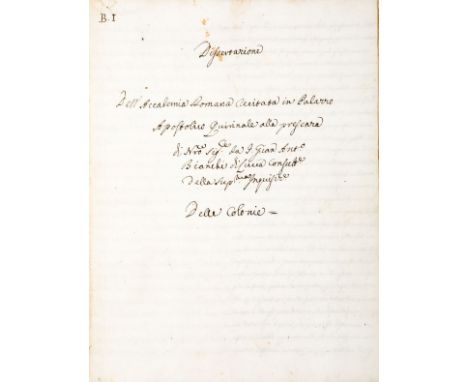 B. I
Dissertazione
Dell' Accademia Romana Recitata in Palazzo
Apostolico Quirinale alla presenza
di Nro Sigre da F. Gian Anto
Bianchi di Lucca Consultre
della Supma Inquisne
Delle Colonie =